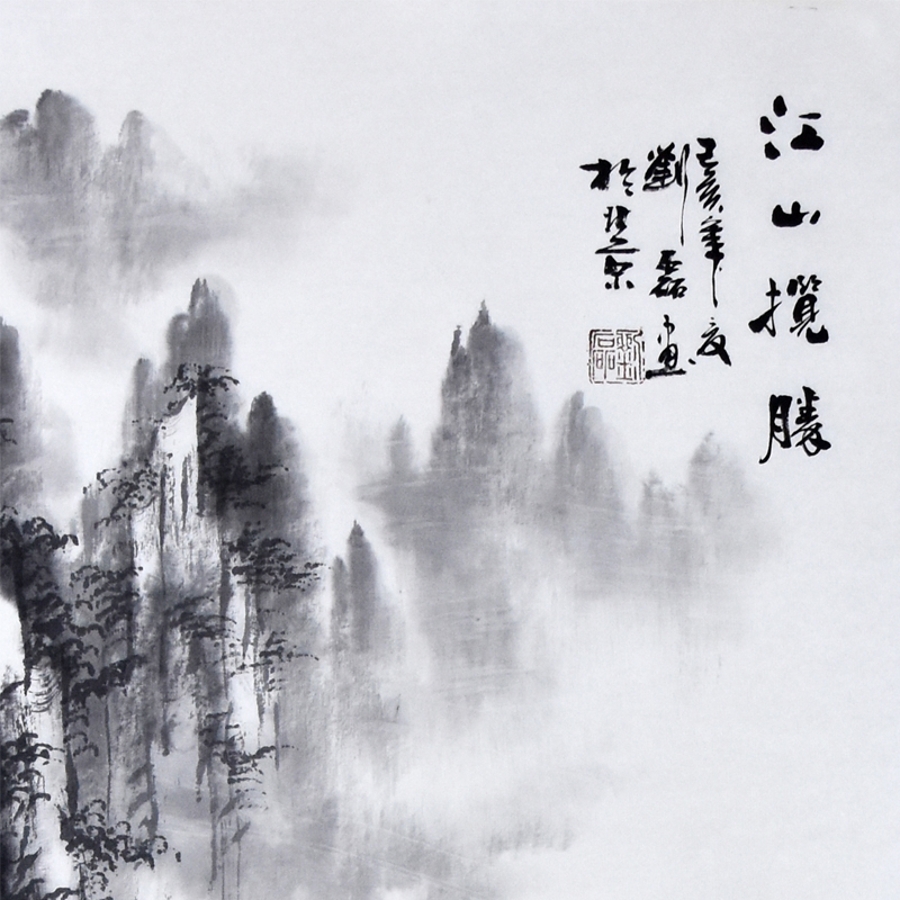 江山攬勝
己亥年夏
劉磊畫
於北京